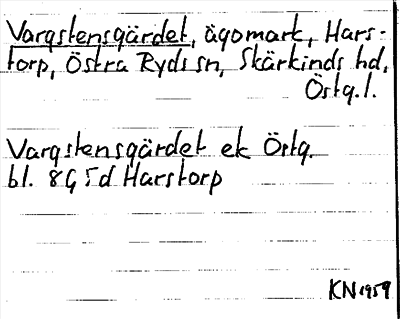 Vargstensgärdet, ägomark, Hars-
torp, Östra Ryds sn, Skärkinds hd,
Östg.l.
Vargstensgärdet ek Östg.
bl. 8G 5d Harstorp
KN 1959